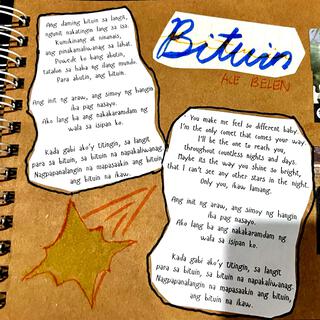 Bituin
ACE BELEN
Ang daming bituin sa langit,
ngunit nakatingin lang sa isa.
Kumikinang at ninanais,
ang pinakamaliwanag sa lahat.
Puwede ko bang abutin,
tatalon sa baba ng ilang mundo.
Para abutin, ang bituin.
Ang init ng araw, ang simoy ng hangin
ika pag nasayo.
Ako lang ba ang nakakaramdam ng
wala sa isipan ko.
Kada gabi ako'y titingin, sa langit
para sa bituin, sa bituin na napakaliwanag.
Nagpapanalangin na mapasaakin ang bituin,
ang bituin na ikaw.
You make me feel so different baby.
I'm the only comet that comes your way.
I'll be the one to reach you,
throughout countless nights and days.
Maybe its the way you shine so bright,
that I can't see any other stars in the night.
Only you, ikaw lamang.
Ang init ng araw, ang simoy ng hangin
ika pag nasayo.
Ako lang ba ang nakakaramdam ng
wala sa isipan ko.
Kada gabi ako'y titingin, sa langit
para sa bituin, sa bituin na napakaliwanag.
Nagpapanalangin na mapasaakin ang bituin,
ang bituin na ikaw.